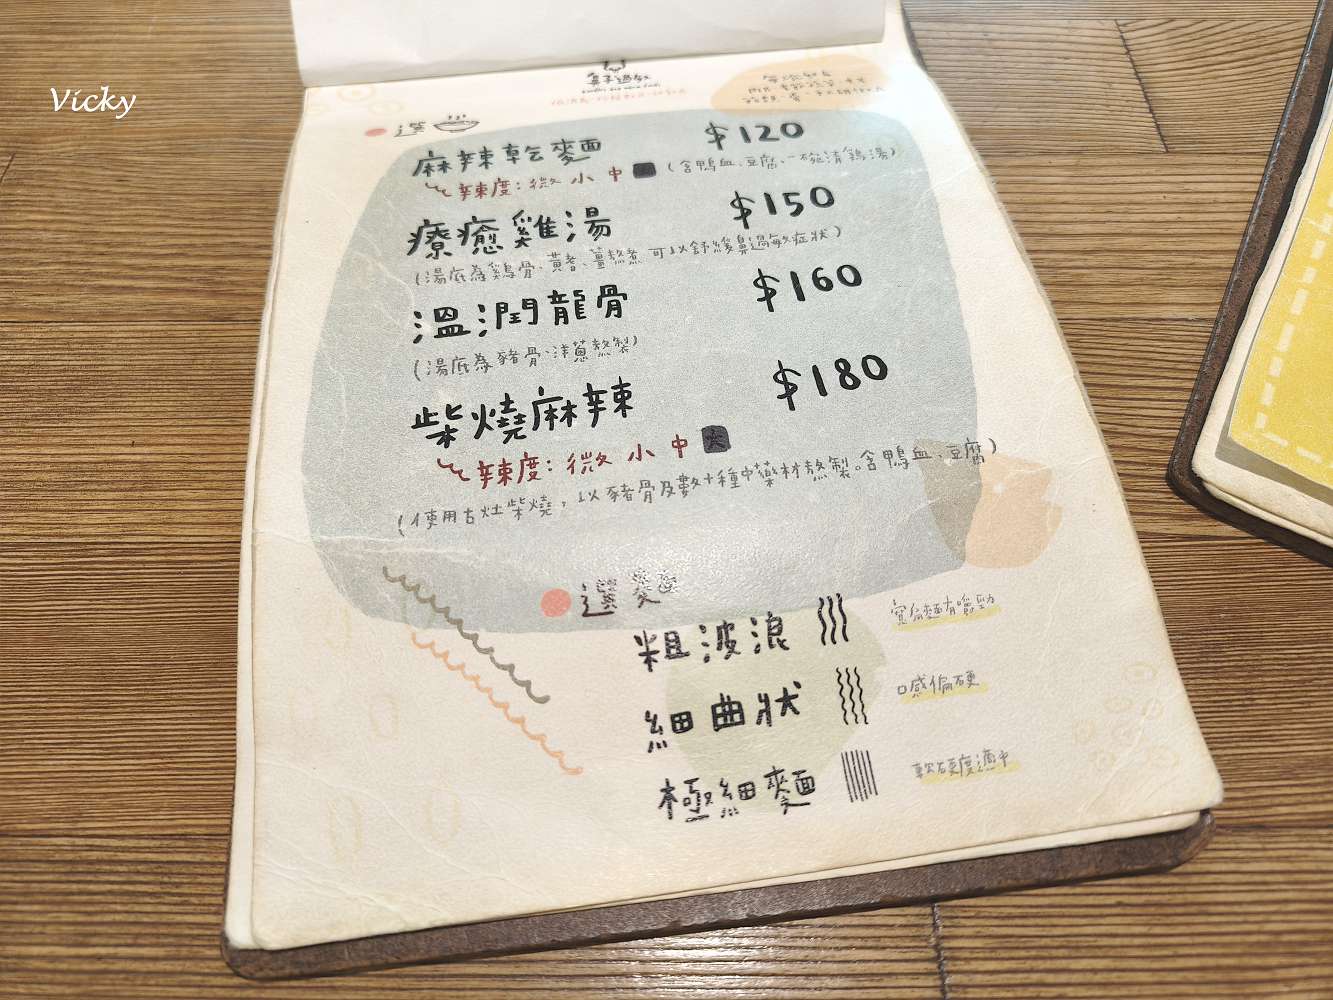 Vicky
鼻子過敏
選
麻辣乾麵 $120
辣度：微 小 中 (含鴨血、豆腐、一碗清鷄湯)
療癒雞湯 $150
(湯底為鷄骨、黃耆、薑熬煮 可以舒緩鼻過敏症狀)
溫潤龍骨 $160
(湯底為豬骨、洋蔥熬製)
柴燒麻辣 $180
辣度：微 小 中 大
(使用古灶柴燒，以豬骨及數十種中藥材熬製。含鴨血、豆腐)
選麵
粗波浪 寬扁麵有嚼勁
細曲狀 口感偏硬
極細麵 軟硬度適中